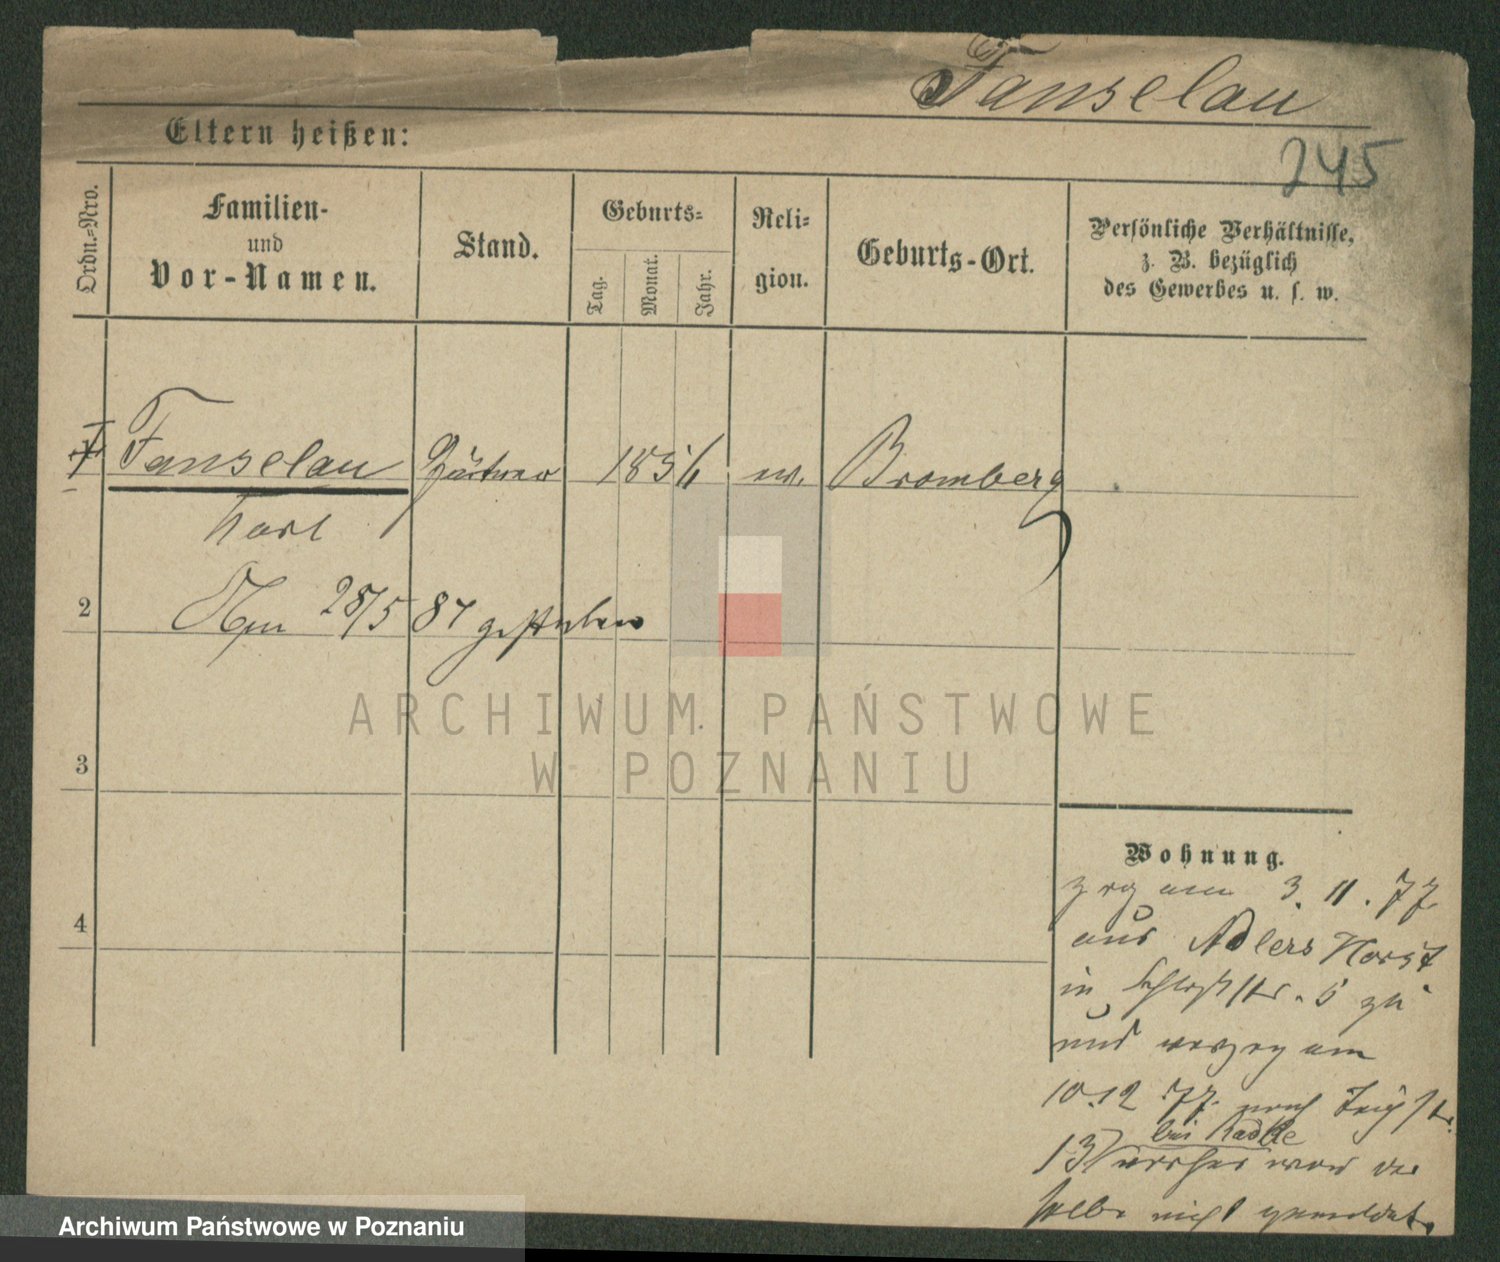 Fanselau
245
Eltern heißen:
Ordn.-Nro.
Familien-
und
Vor-Namen.
Stand.
Geburts-
Tag.
Monat.
Jahr.
Reli-
gion.
Geburts-Ort.
Persönliche Verhältnisse,
z. B. bezüglich
des Gewerbes u. s. w.
Fanselau Gärtner 1856 ev. Bromberg
Karl
2
Am 28/5 87 gestorben
3
4
ARCHIWUM PAŃSTWOWE
W POZNANIU
Wohnung.
zog am 3. 11. 77
aus Adlers Horst
in Schloßstr. 5 zu
und verzog am
10.12 77. nach
bei Radke
13 vorher war der
selbe nicht gemeldet.
Archiwum Państwowe w Poznaniu